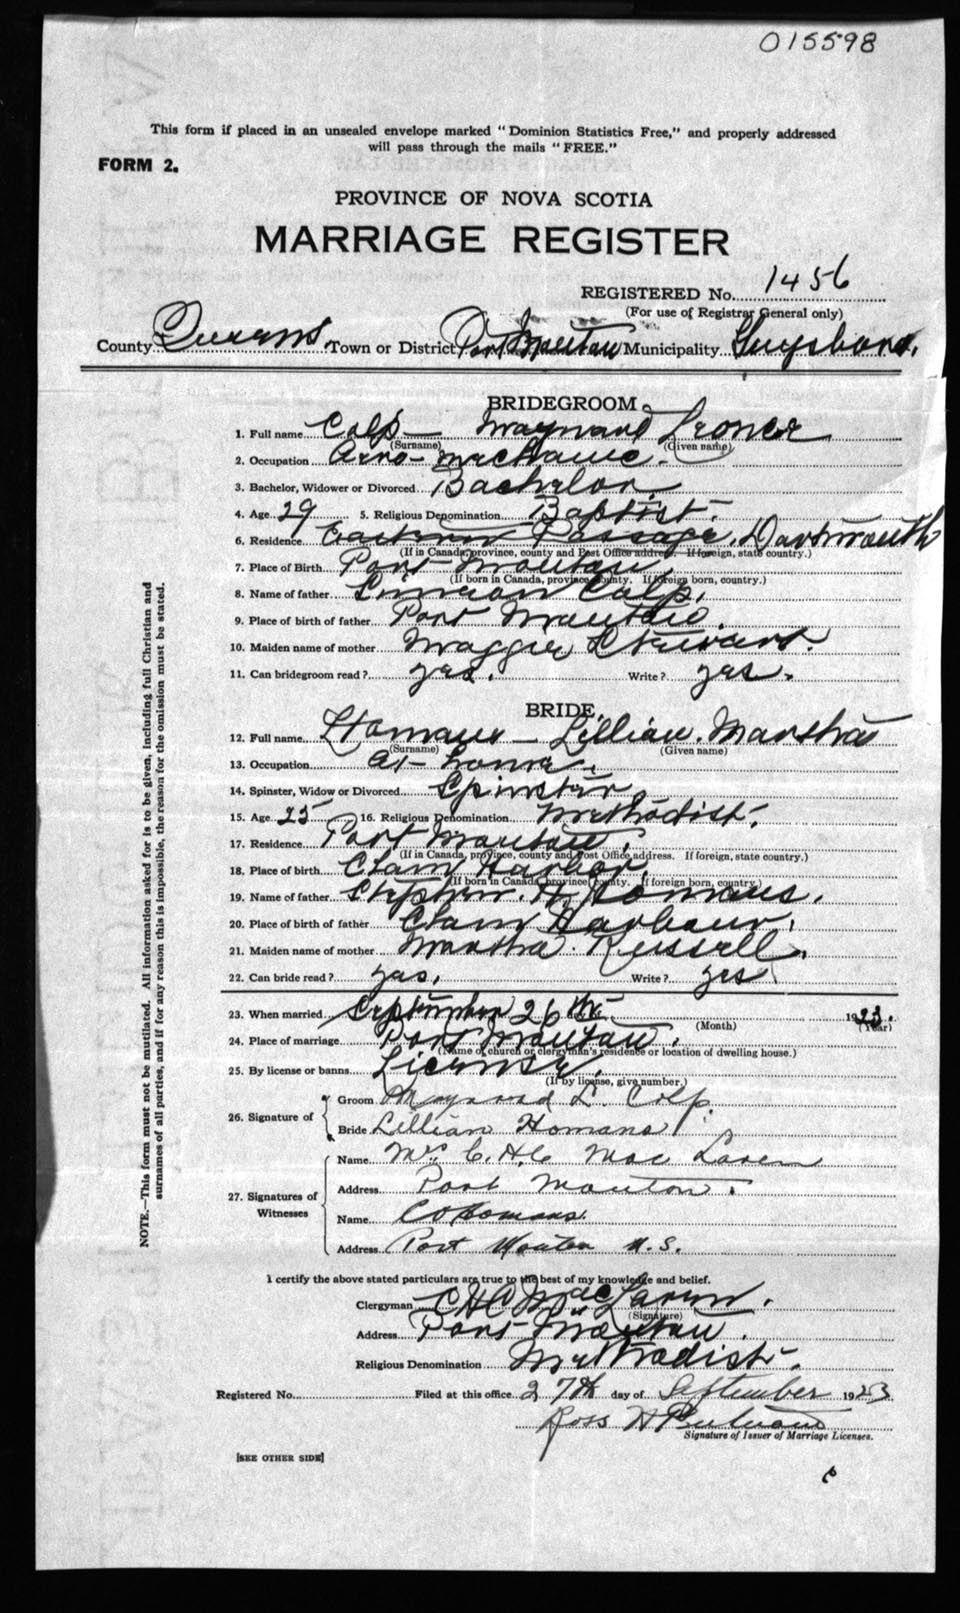 015598
This form if placed in an unsealed envelope marked "Dominion Statistics Free," and properly addressed
will pass through the mails "FREE."
FORM 2.
PROVINCE OF NOVA SCOTIA
MARRIAGE REGISTER
REGISTERED No. 1456
(For use of Registrar General only)
County Queens. Town or District Port Moutau Municipality Guysboro.
BRIDEGROOM
1. Full name Colp — Maynard
(Surname) (Given name)
2. Occupation Aero-mechanic.
3. Bachelor, Widower or Divorced Bachelor.
4. Age 29 5. Religious Denomination Baptist.
6. Residence Eastern Passage. Dartmouth
(If in Canada, province, county and Post Office address. If foreign, state country.)
7. Place of Birth Port Moutau.
(If born in Canada, province county. If foreign born, country.)
8. Name of father Colp.
9. Place of birth of father Port
10. Maiden name of mother Maggie Stewart.
11. Can bridegroom read? yes. Write? yes.
BRIDE.
12. Full name Homans — Lillian. Martha
(Surname) (Given name)
13. Occupation at home.
14. Spinster, Widow or Divorced Spinster
15. Age 25 16. Religious Denomination Methodist.
17. Residence Port Moutau.
(If in Canada, province, county and Post Office address. If foreign, state country.)
18. Place of birth Clam Harbor.
(If born in Canada, province, county. If foreign born, country.)
19. Name of father Stephen. H. Homans.
20. Place of birth of father Clam Harbour.
21. Maiden name of mother Martha Russell.
22. Can bride read? yes. Write? yes
23. When married September 26th 1923.
(Month) (Year)
24. Place of marriage Port Moutau.
(Name of church or clergyman's residence or location of dwelling house.)
25. By license or banns License.
(If by license, give number.)
26. Signature of
Groom Maynard L. Colp.
Bride Lillian Homans
27. Signatures of
Witnesses
Name Mrs C. H. C Mac Laren
Address Port Mouton.
Name C O Homans.
Address Port Mouton N.S.
I certify the above stated particulars are true to the best of my knowledge and belief.
Clergyman C H C MacLaren.
(Signature)
Address Port Moutau.
Religious Denomination Methodist.
Registered No. Filed at this office 27th day of September 1923
Ross H
Signature of Issuer of Marriage Licenses.
[SEE OTHER SIDE]
NOTE.—This form must not be mutilated. All information asked for is to be given, including full Christian and
surnames of all parties, and if for any reason this is impossible, the reason for the omission must be stated.